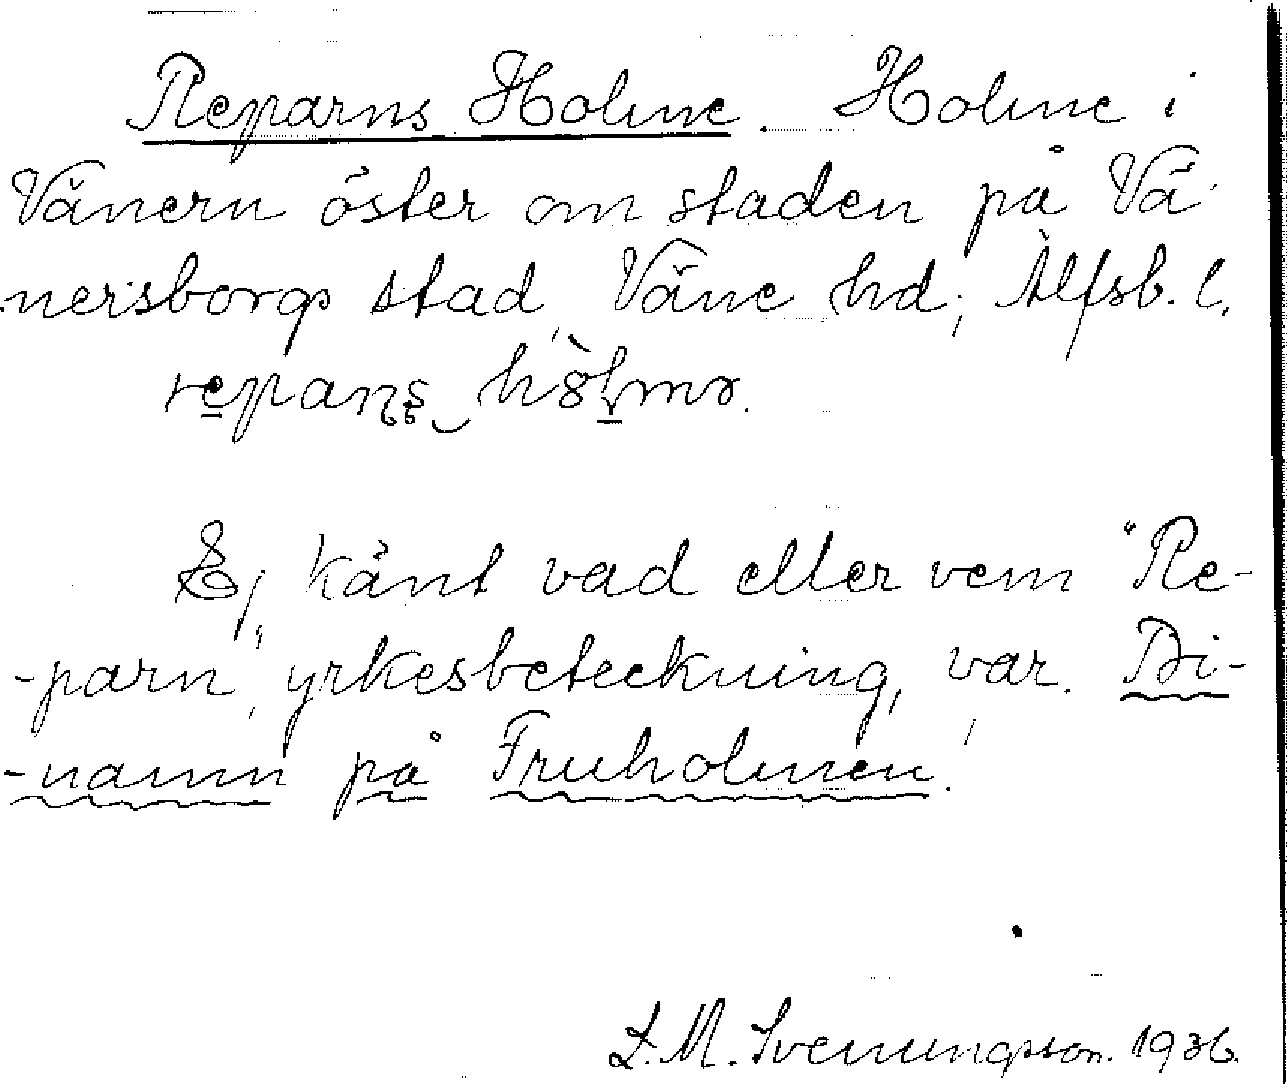 Reparns Holme. Holme i
Vänern öster om staden på Vä-
nersborgs stad, Väne hd, Älfsb. l.
Ej känt vad eller vem "Re-
-parn", yrkesbeteckning, var. Bi-
-namn på Fruholmen.
J. M. Svenungsson. 1936.